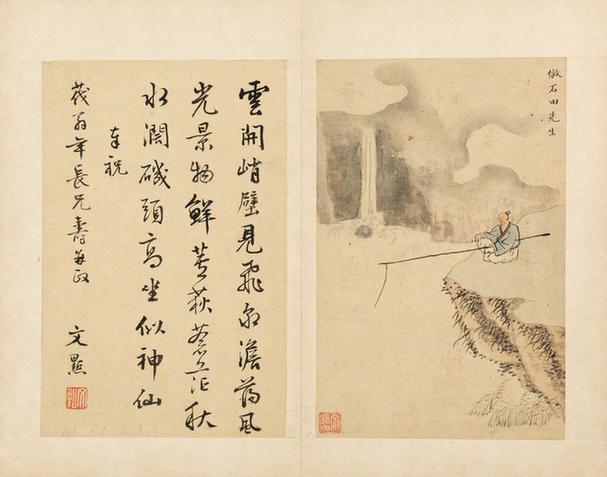 倣石田先生
雲開峭壁見飛泉澹蕩風
光景物鮮荻蒼茫秋
水濶磯頭高坐似神仙
奉祝
翁年長兄壽並政
文點